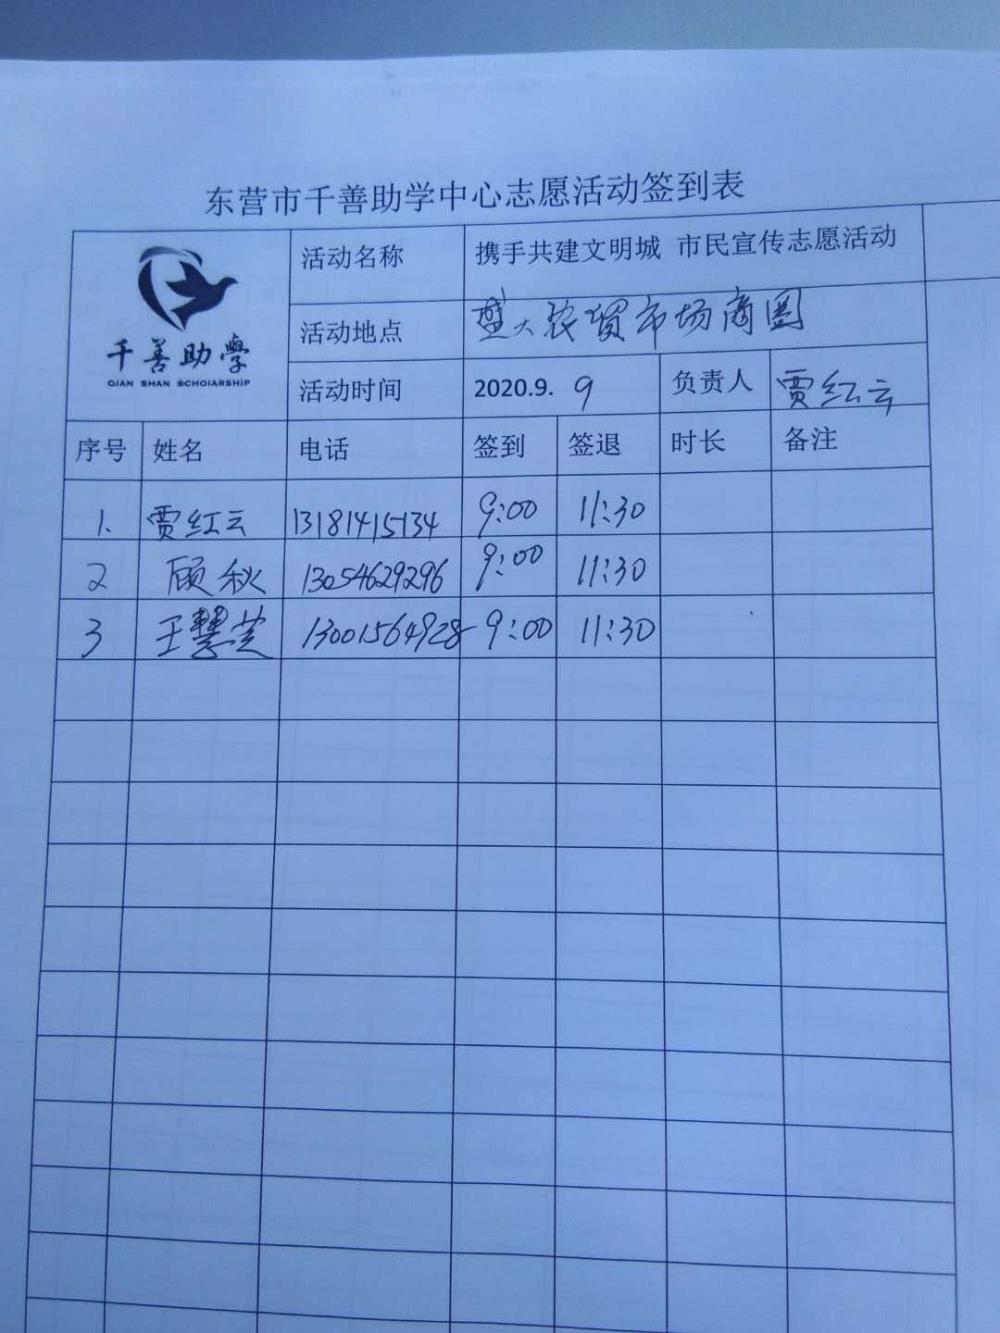 东营市千善助学中心志愿活动签到表
千善助学
QIAN SHAN SCHOIARSHIP
活动名称 携手共建文明城 市民宣传志愿活动
活动地点 盛大农贸市场商圈
活动时间 2020.9. 9 负责人 贾红云
序号 姓名 电话 签到 签退 时长 备注
1. 贾红云 13181415134 9:00 11:30
2 顾秋 13054629296 9:00 11:30
3 王慧芝 13001564928 9:00 11:30